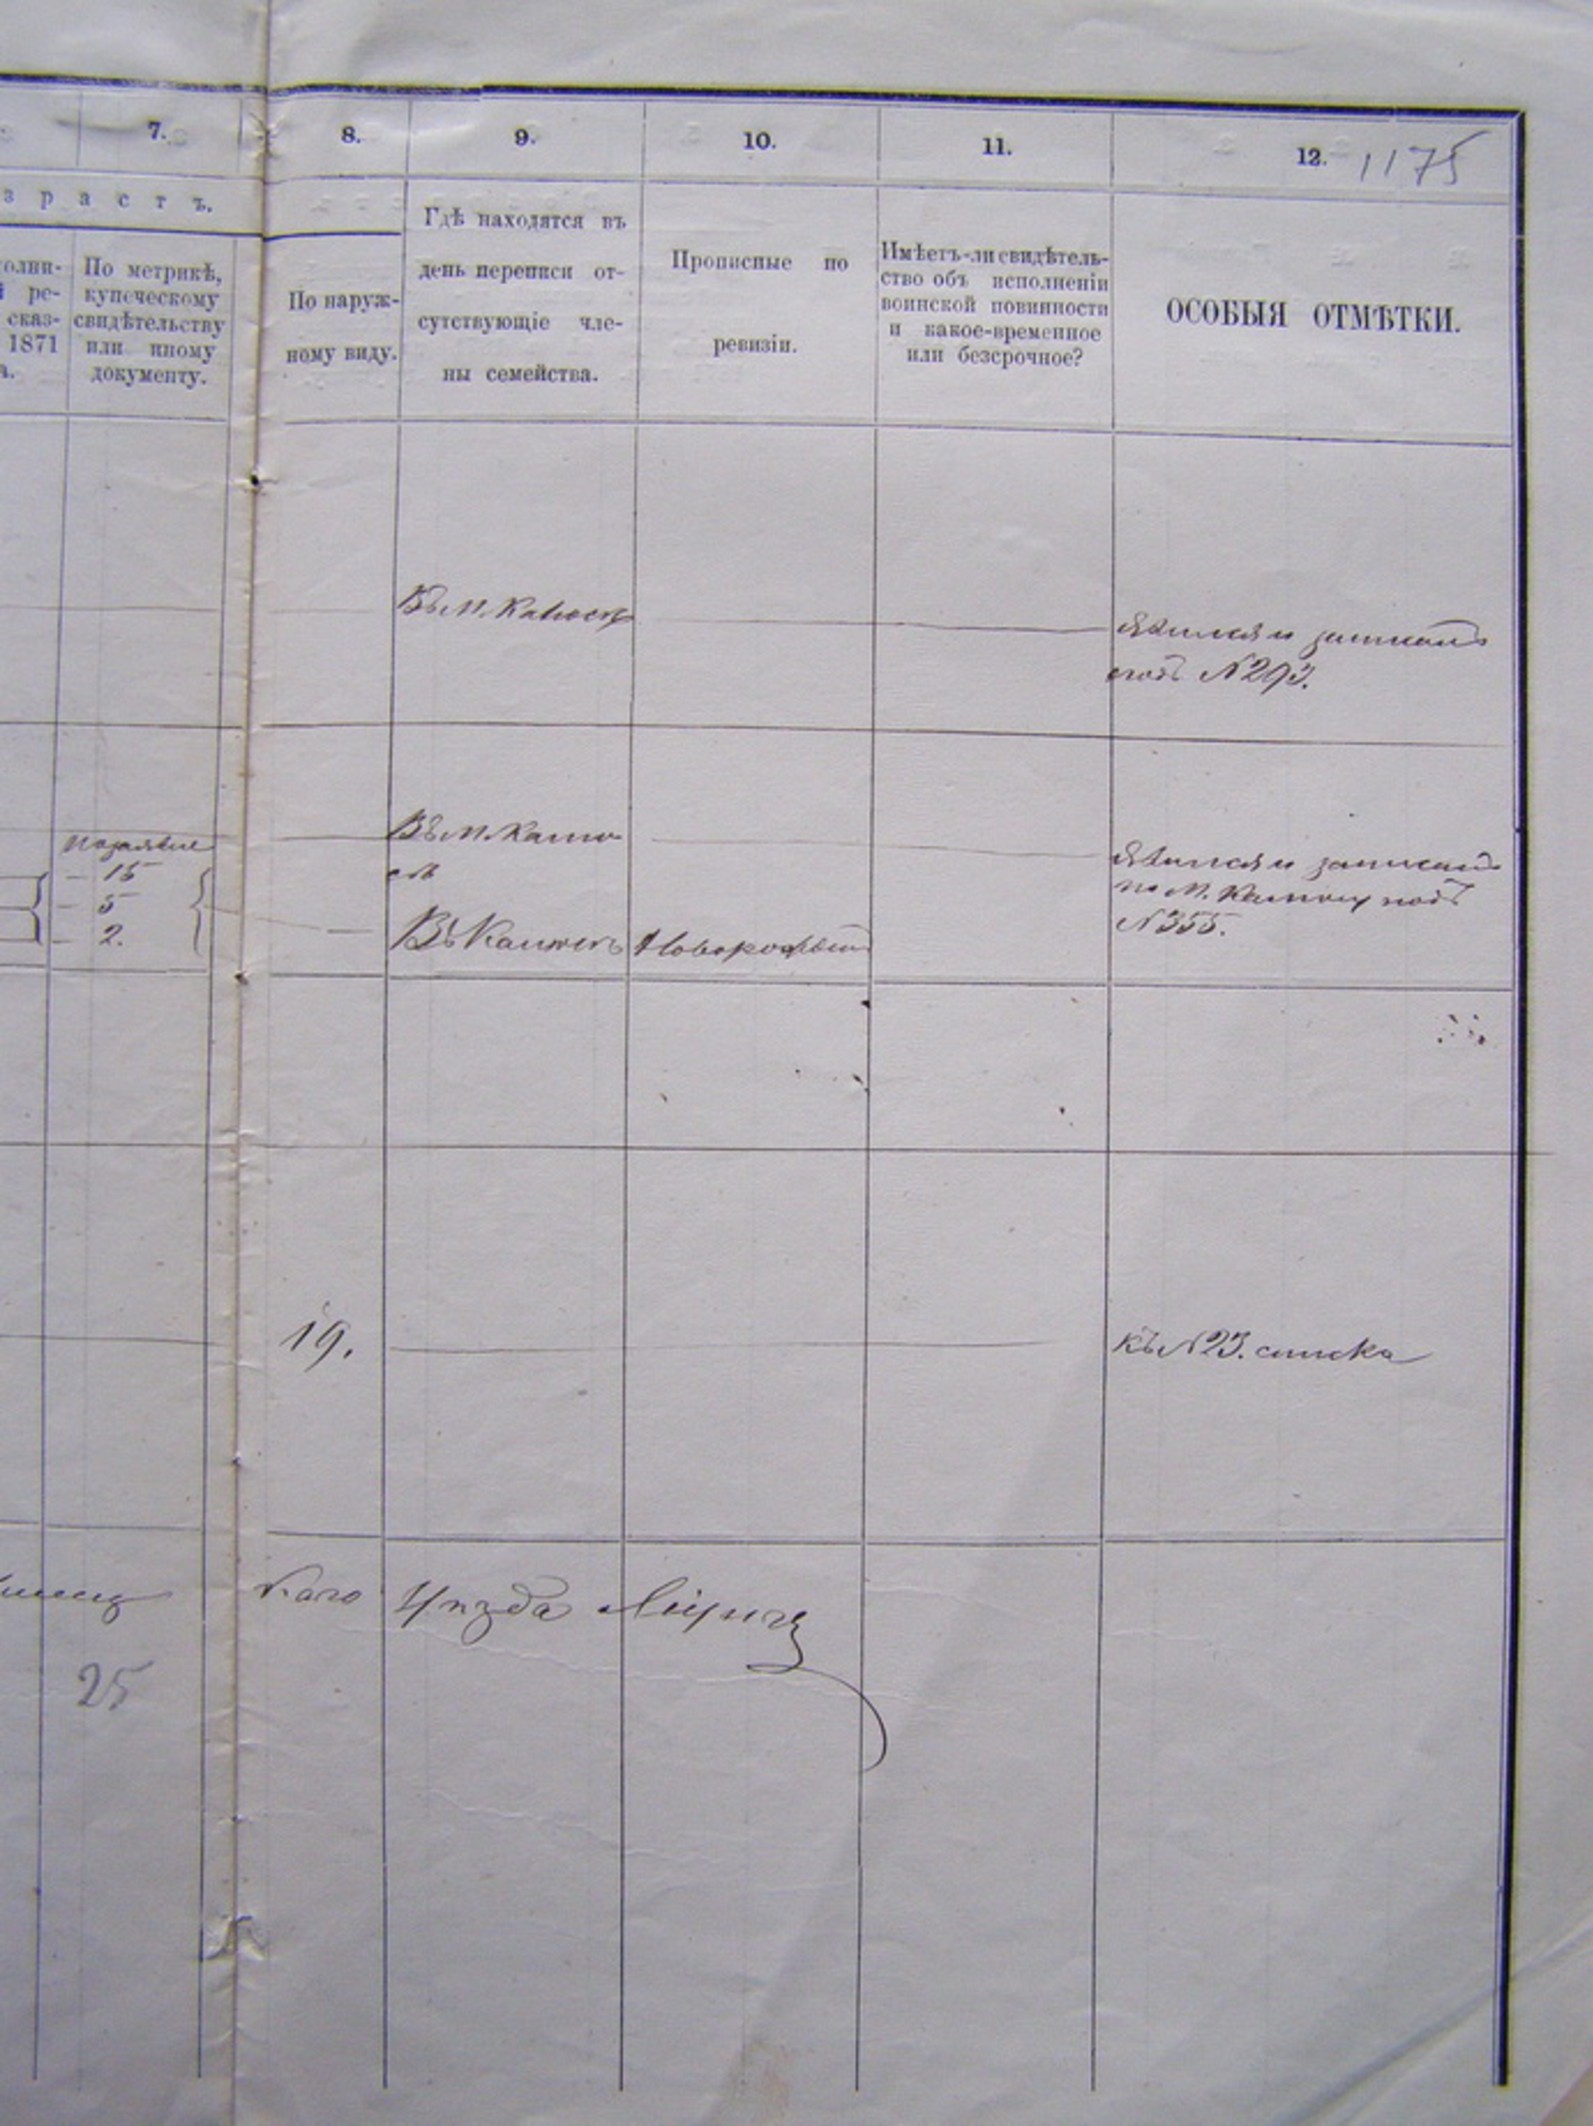 7.
8.
9.
10.
11.
12.
1175
зрастъ.
олни-
ре-
сказ-
1871
а.
По метрикѣ,
купеческому
свидѣтельству
или иному
документу.
По наруж-
ному виду.
Гдѣ находятся въ
день переписи от-
сутствующіе чле-
ны семейства.
Прописные по
ревизіи.
Имѣетъ-ли свидѣтель-
ство объ исполненіи
воинской повинности
и какое-временное
или безсрочное?
ОСОБЫЯ ОТМѢТКИ.
Въ М.
Явился и записанъ
подъ №293.
15
5
2.
Въ М.
Въ
Явился и записанъ
по М. подъ
№355.
19.
къ №23. списка
каго
25